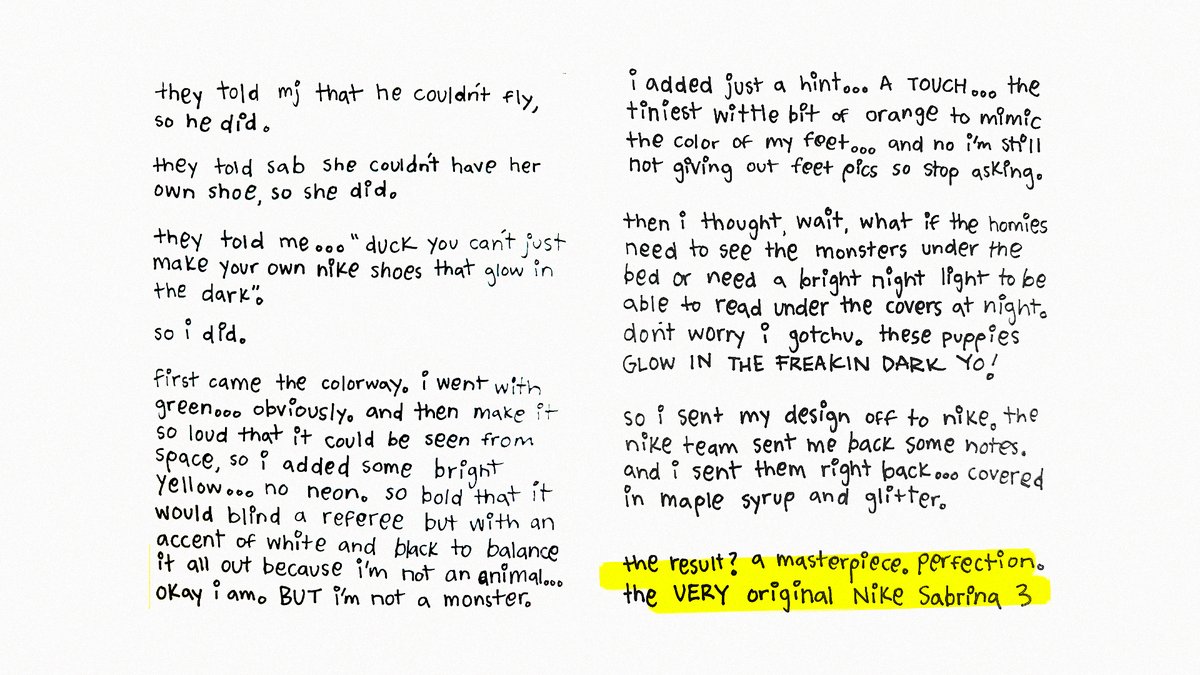 they told mj that he couldn't fly,
so he did.
they told sab she couldn't have her
own shoe, so she did.
they told me..."duck you can't just
make your own nike shoes that glow in
the dark".
so i did.
first came the colorway. i went with
green... obviously. and then make it
so loud that it could be seen from
space, so i added some bright
yellow... no neon. so bold that it
would blind a referee but with an
accent of white and black to balance
it all out because i'm not an animal...
okay i am. BUT i'm not a monster.
i added just a hint... A TOUCH... the
tiniest wittle bit of orange to mimic
the color of my feet... and no i'm still
not giving out feet pics so stop asking.
then i thought, wait, what if the homies
need to see the monsters under the
bed or need a bright night light to be
able to read under the covers at night.
don't worry i gotchu. these puppies
GLOW IN THE FREAKIN DARK YO!
so i sent my design off to nike. the
nike team sent me back some notes.
and i sent them right back... covered
in maple syrup and glitter.
the result? a masterpiece. perfection.
the VERY original Nike Sabrina 3